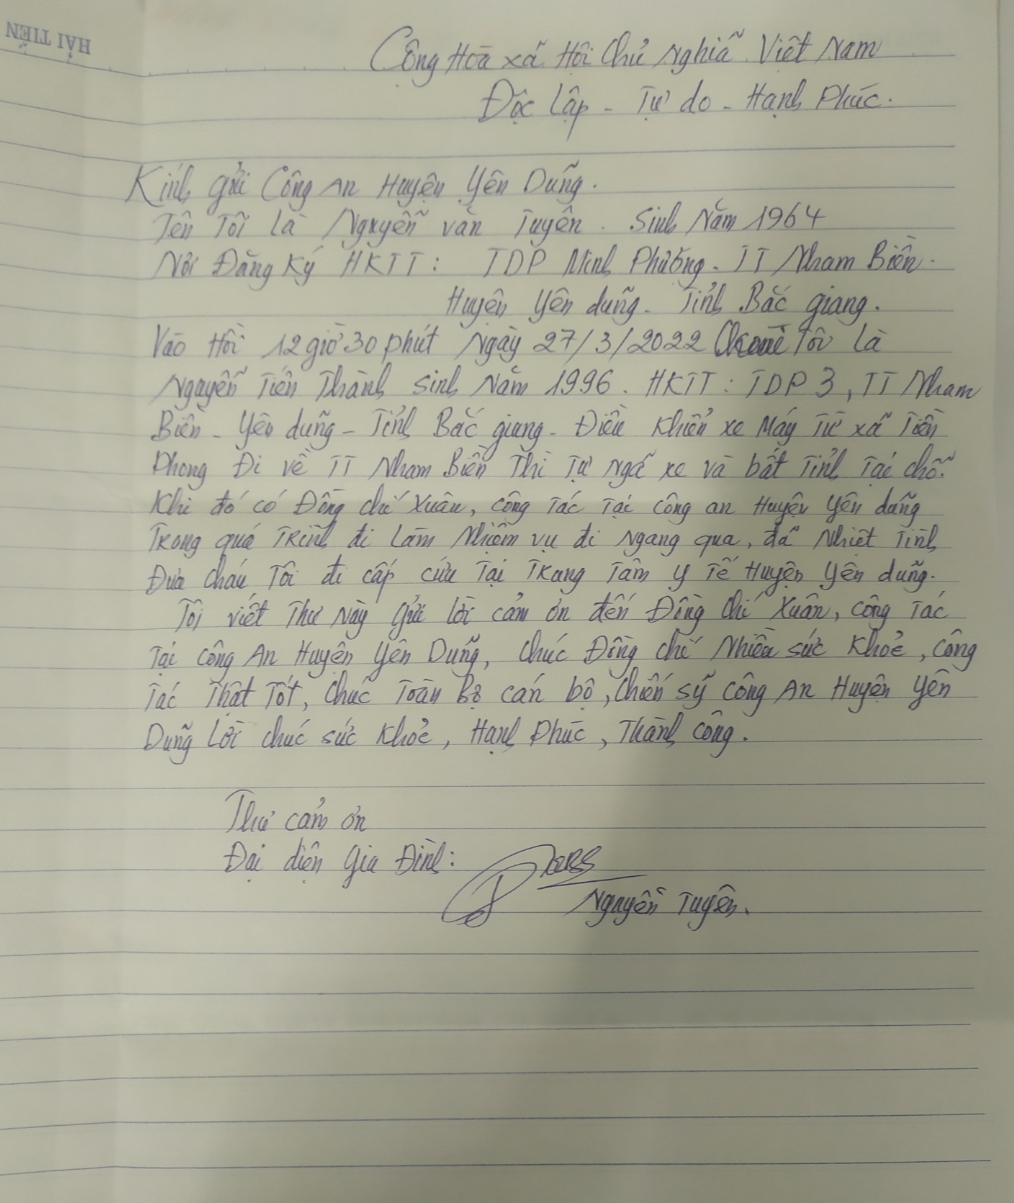 HẢI TIẾN
Cộng Hoà xã Hội Chủ Nghiã Việt Nam
Độc lập - Tự do - Hạnh Phúc.
Kính gửi Công An Huyện Yên Dũng.
Tên Tôi Là Nguyễn văn Tuyên. Sinh Năm 1964
Nơi Đăng Ký HKTT: TDP Minh Phượng. TT Nham Biền.
Huyện Yên dũng. Tỉnh Bắc giang.
Vào Hồi 12 giờ 30 phút Ngày 27/3/2022 Cháu Tôi Là
Nguyễn Tiến Thành sinh Năm 1996. HKTT: TDP 3, TT Nham
Biền - Yên dũng - Tỉnh Bắc giang. Điều khiển xe Máy Từ xã Tiền
Phong Đi về TT Nham Biền Thì Tự Ngã xe và bất Tỉnh Tại chỗ.
Khi đó có Đồng chí Xuân, công Tác Tại công an Huyện Yên dũng
Trong quá Trình đi Làm Nhiệm vụ đi Ngang qua, đã Nhiệt Tình
Đưa cháu Tôi đi cấp cứu Tại Trung Tâm y Tế Huyện Yên dũng.
Tôi viết Thư Này gửi lời cảm ơn đến Đồng chí Xuân, công Tác
Tại công An Huyện Yên Dũng, chúc Đồng chí Nhiều sức Khoẻ, Công
Tác Thật Tốt, chúc Toàn Bộ cán bộ, chiến sỹ công An Huyện Yên
Dũng Lời chúc sức khoẻ, Hạnh Phúc, Thành công.
Thư cảm ơn
Đại diện Gia Đình:
Nguyễn Tuyên.